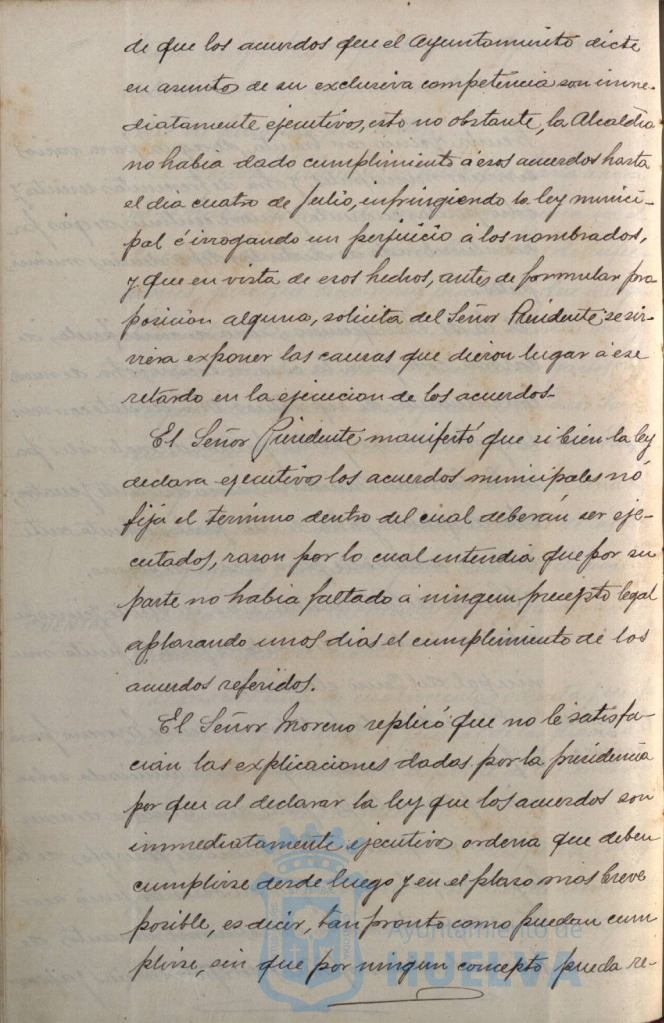 de que los acuerdos que el Ayuntamiento dicte
en asuntos de su exclusiva competencia son inme-
diatamente ejecutivos, esto no obstante, la Alcaldia
no habia dado cumplimiento á esos acuerdos hasta
el dia cuatro de Julio, infringiendo la ley munici-
pal é irrogando un perjuicio á los nombrados,
y que en vista de esos hechos, antes de formular pro
posición alguna, solicita del Señor Presidente se sir-
viera exponer las causas que dieron lugar á ese
retardo en la ejecucion de los acuerdos.
El Señor Presidente manifestó que si bien la ley
declara ejecutivos los acuerdos municipales nó
fija el término dentro del cual deberán ser eje-
cutados, razon por lo cual entendia que por su
parte no habia faltado á ningun precepto legal
aplazando unos dias el cumplimiento de los
acuerdos referidos.
El Señor Moreno replicó que no le satisfa-
cian las explicaciones dadas por la presidencia
por que al declarar la ley que los acuerdos son
inmediatamente ejecutivos ordena que deben
cumplirse desde luego y en el plazo mas breve
posible, es decir, tan pronto como puedan cum-
plirse, sin que por ningun concepto pueda re-
Ayuntamiento de
HUELVA